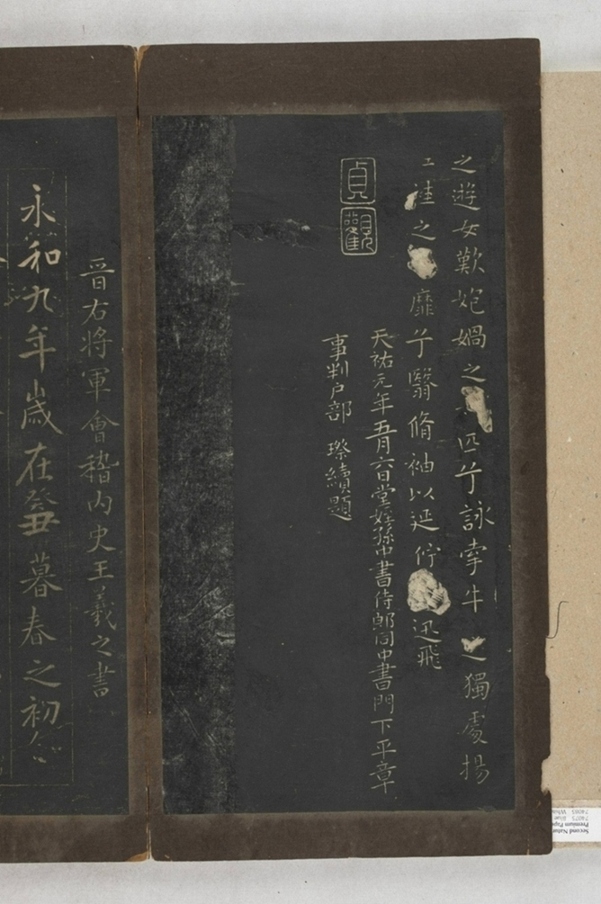 之遊女歎㚿媧之匹兮詠牽牛之獨處揚
袿之靡兮翳脩袖以延佇迅飛
貞觀
天祐元年五月六日堂姪孫中書侍郎同中書門下平章
事判戶部 璨續題
晉右將軍會稽內史王羲之書
永和九年歲在癸丑暮春之初
Second Natur
Premium Pape